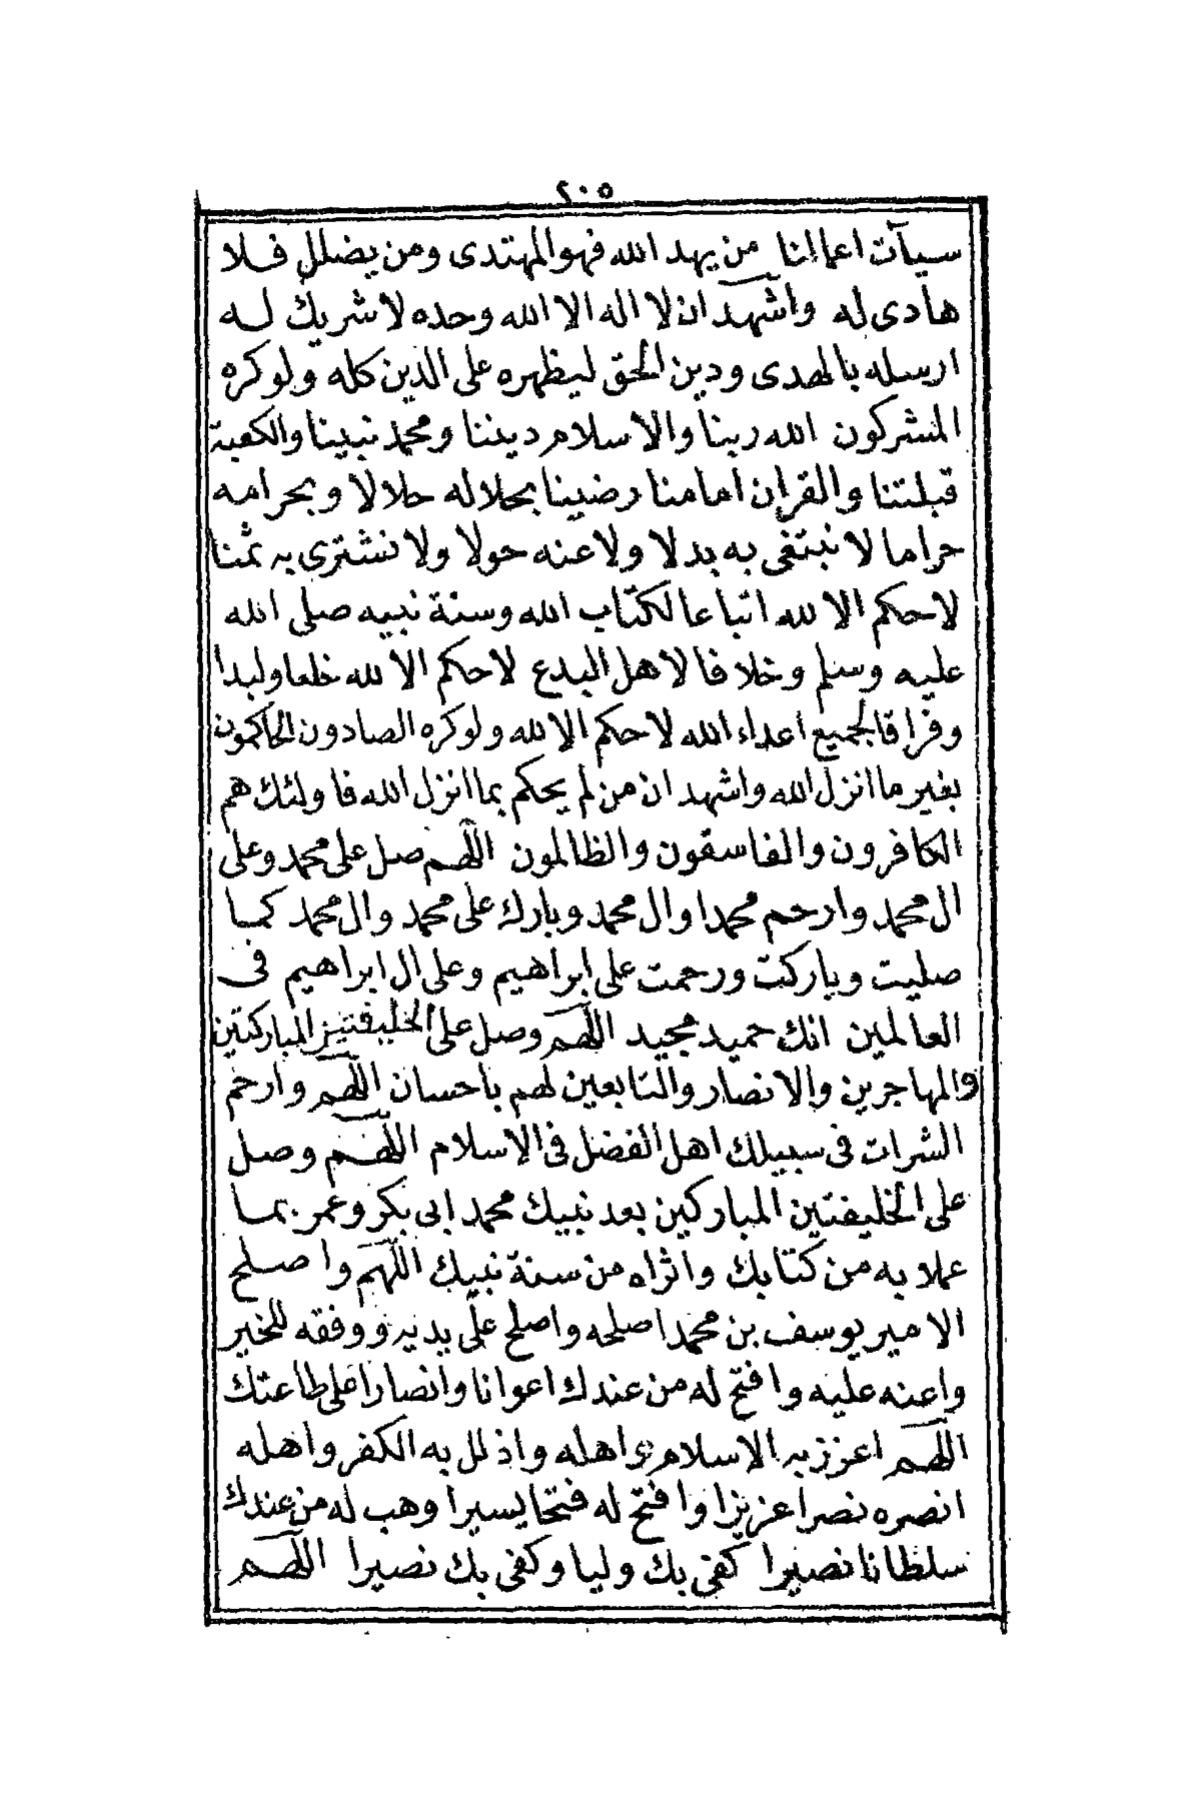 ٢٠٥
سيآت اعمالنا من يهد الله فهو المهتدى ومن يضلل فلا
هادى له واشهد ان لا اله الا الله وحده لا شريك له
ارسله بالهدى ودين الحق ليظهره على الدين كله ولو كره
المشركون الله ربنا والاسلام ديننا ومحمد نبينا والكعبة
قبلتنا والقران امامنا رضينا بحلاله حلالا وبحرامه
حراما لا نبتغى به بدلا ولا عنه حولا ولا نشترى به ثمنا
لا حكم الا لله اتباعا لكتاب الله وسنة نبيه صلى الله
عليه وسلم وخلافا لاهل البدع لا حكم الا لله خلعا ولبدا
وفراقا لجميع اعداء الله لا حكم الا لله ولو كره الصادون الحاكمون
بغير ما انزل الله واشهد ان من لم يحكم بما انزل الله فاولئك هم
الكافرون والفاسقون والظالمون اللهم صل على محمد وعلى
ال محمد وارحم محمدا وال محمد وبارك على محمد وال محمد كما
صليت وباركت ورحمت على ابراهيم وعلى ال ابراهيم فى
العالمين انك حميد مجيد اللهم وصل على الخليفتين المباركتين
والمهاجرين والانصار والتابعين لهم باحسان اللهم وارحم
الشرات فى سبيلك اهل الفضل فى الاسلام اللهم وصل
على الخليفتين المباركين بعد نبيك محمد ابى بكر وعمر بما
عملا به من كتابك واثراه من سنة نبيك اللهم واصلح
الامير يوسف بن محمد اصلحه واصلح على يديه ووفقه للخير
واعنه عليه وافتح له من عندك اعوانا وانصارا على طاعتك
اللهم اعزز به الاسلام واهله واذلل به الكفر واهله
انصره نصرا عزيزا وافتح له فتحا يسيرا وهب له من عندك
سلطانا نصيرا كفى بك وليا وكفى بك نصيرا اللهم